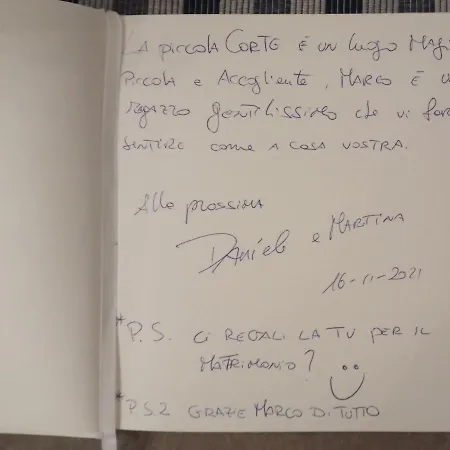 LA piccola CORTE È UN luogo MAGI
Piccola e Accogliente, MARCO È U
ragazzo gentilissimo che vi far
SENTIRE come A CASA VOSTRA.
Alla prossima
Daniele e MARTINA
16-11-2021
*P.S. CI REGALI LA TV PER IL
MATRIMONIO?
*P.S.2 GRAZIE MARCO DI TUTTO